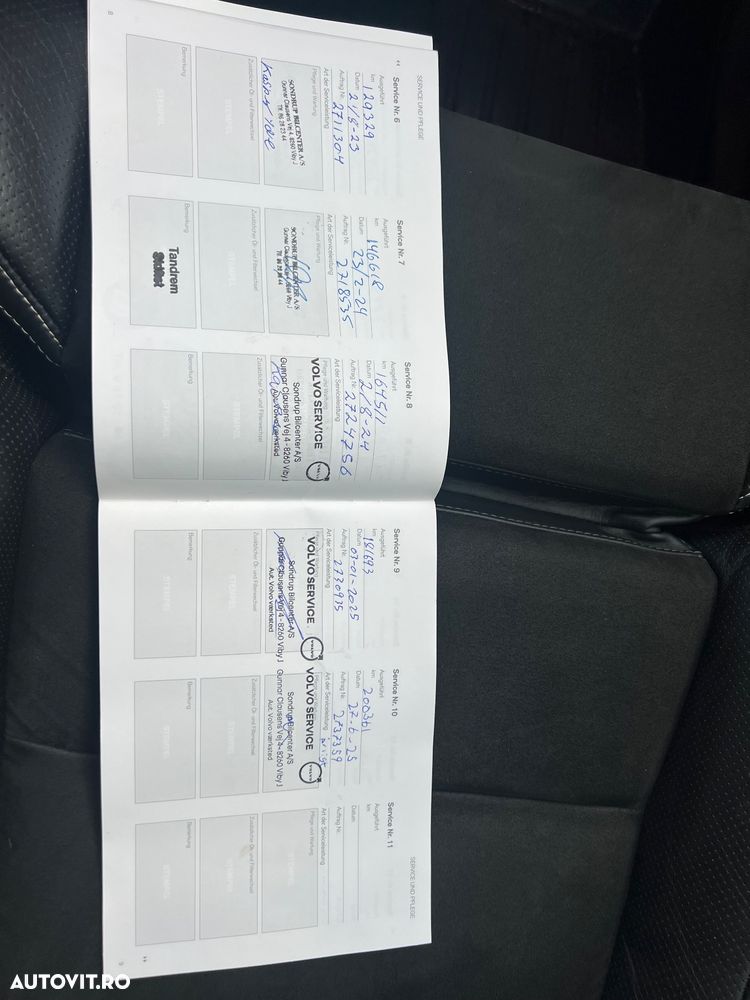 8
SERVICE UND PFLEGE
Service Nr. 6
Ausgeführt
km 129329
Datum 21/8-23
Auftrag Nr. 2711304
Art der Serviceleistung
Pflege und Wartung
SONDRUP BILCENTER A/S
Gunnar Clausens Vej 4, 8260 Viby J
Tlf. 86 28 23 44
Zusätzlicher Öl- und Filterwechsel
STEMPEL
Bemerkung
STEMPEL
Service Nr. 7
Ausgeführt
km 146618
Datum 23/2-24
Auftrag Nr. 2718535
Art der Serviceleistung
Pflege und Wartung
SONDRUP BILCENTER A/S
Gunnar Clausens Vej 4, 8260 Viby J
Zusätzlicher Öl- und Filterwechsel
STEMPEL
Bemerkung
Tandrem
Skiftet
Service Nr. 8
Ausgeführt
km 164511
Datum 2/8-24
Auftrag Nr. 2724756
Art der Serviceleistung
Pflege und Wartung
VOLVO SERVICE
VOLVO
Sondrup Bilcenter A/S
Gunnar Clausens Vej 4 - 8260 Viby J
Aut. Volvo værksted
Zusätzlicher Öl- und Filterwechsel
Bemerkung
STEMPEL
Service Nr. 9
Ausgeführt
km 181693
Datum 03-01-2025
Auftrag Nr. 2730935
Art der Serviceleistung
VOLVO SERVICE
VOLVO
Sondrup Bilcenter A/S
Gunnar Clausens Vej 4 - 8260 Viby J
Aut. Volvo værksted
Zusätzlicher Öl- und Filterwechsel
STEMPEL
Bemerkung
STEMPEL
Service Nr. 10
Ausgeführt
km 200361
Datum 27-6-25
Auftrag Nr. 2737359
Art der Serviceleistung
VOLVO SERVICE
VOLVO
Sondrup Bilcenter A/S
Gunnar Clausens Vej 4 - 8260 Viby J
Aut. Volvo værksted
Zusätzlicher Öl- und Filterwechsel
STEMPEL
Bemerkung
STEMPEL
SERVICE UND PFLEGE
Service Nr. 11
Ausgeführt
km
Datum
Auftrag Nr.
Art der Serviceleistung
Pflege und Wartung
STEMPEL
Zusätzlicher Öl- und Filterwechsel
STEMPEL
Bemerkung
STEMPEL
9
AUTOVIT.RO